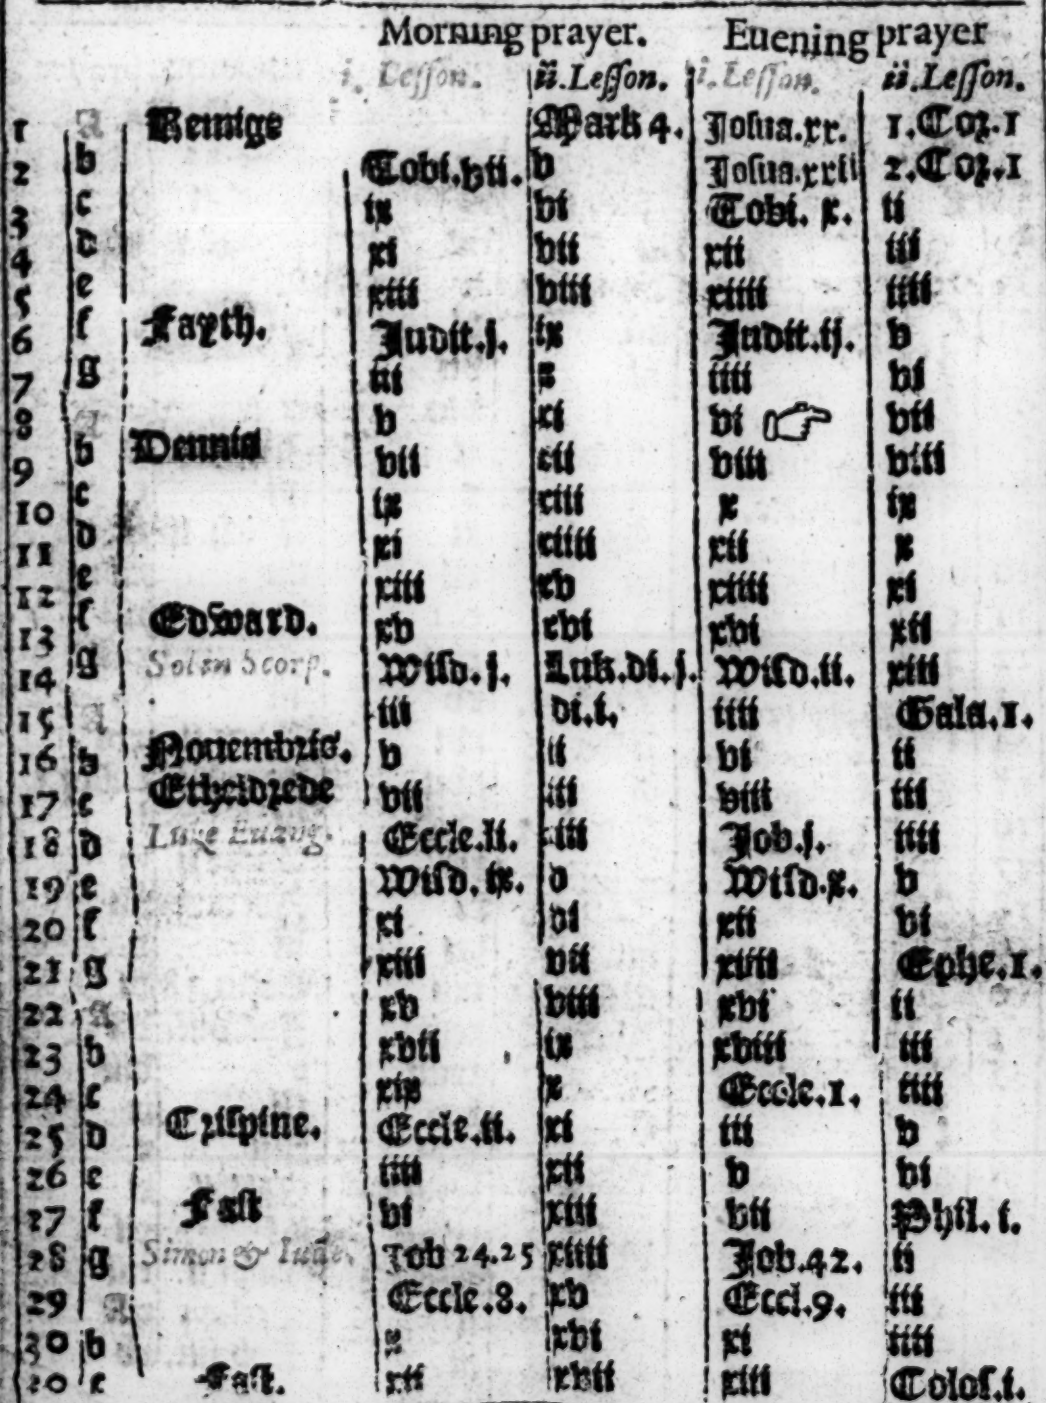 Morning prayer. Euening prayer
i. Lesson. ii. Lesson. i. Lesson. ii. Lesson.
1 a Remige Mark 4. Iosua.xx. 1.Cor.1
2 b Tobi.vii. v Iosua.xxii 2.Cor.1
3 c ix vi Tobi. x. ii
4 d xi vii xii iii
5 e xiii viii xiiii iiii
6 f Fayth. Iudit.j. ix Iudit.ij. v
7 g iii x iiii vi
8 a v xi vi ☞ vii
9 b Dennis vii xii viii viii
10 c ix xiii x ix
11 d xi xiiii xii x
12 e xiii xv xiiii xi
13 f Edward. xv xvi xvi xii
14 g Sol in Scorp. Wisd.j. Luk.di.j. Wisd.ii. xiii
15 a iii di.i. iiii Gala.1.
16 b Nouembris. v ii vi ii
17 c Etheldrede vii iii viii iii
18 d Luke Euang. Eccle.li. iiii Job.j. iiii
19 e Wisd. ix. v Wisd.x. v
20 f xi vi xii vi
21 g xiii vii xiiii Ephe.1.
22 a xv viii xvi ii
23 b xvii ix xviii iii
24 c xix x Eccle.1. iiii
25 d Crispine. Eccle.ii. xi iii v
26 e iiii xii v vi
27 f Fast vi xiii vii Phil. i.
28 g Simon & Iude. Iob 24.25 xiiii Job.42. ii
29 a Eccle.8. xv Eccl.9. iii
30 b x xvi xi iiii
30 c Fast. xii xvii xiii Colos.i.